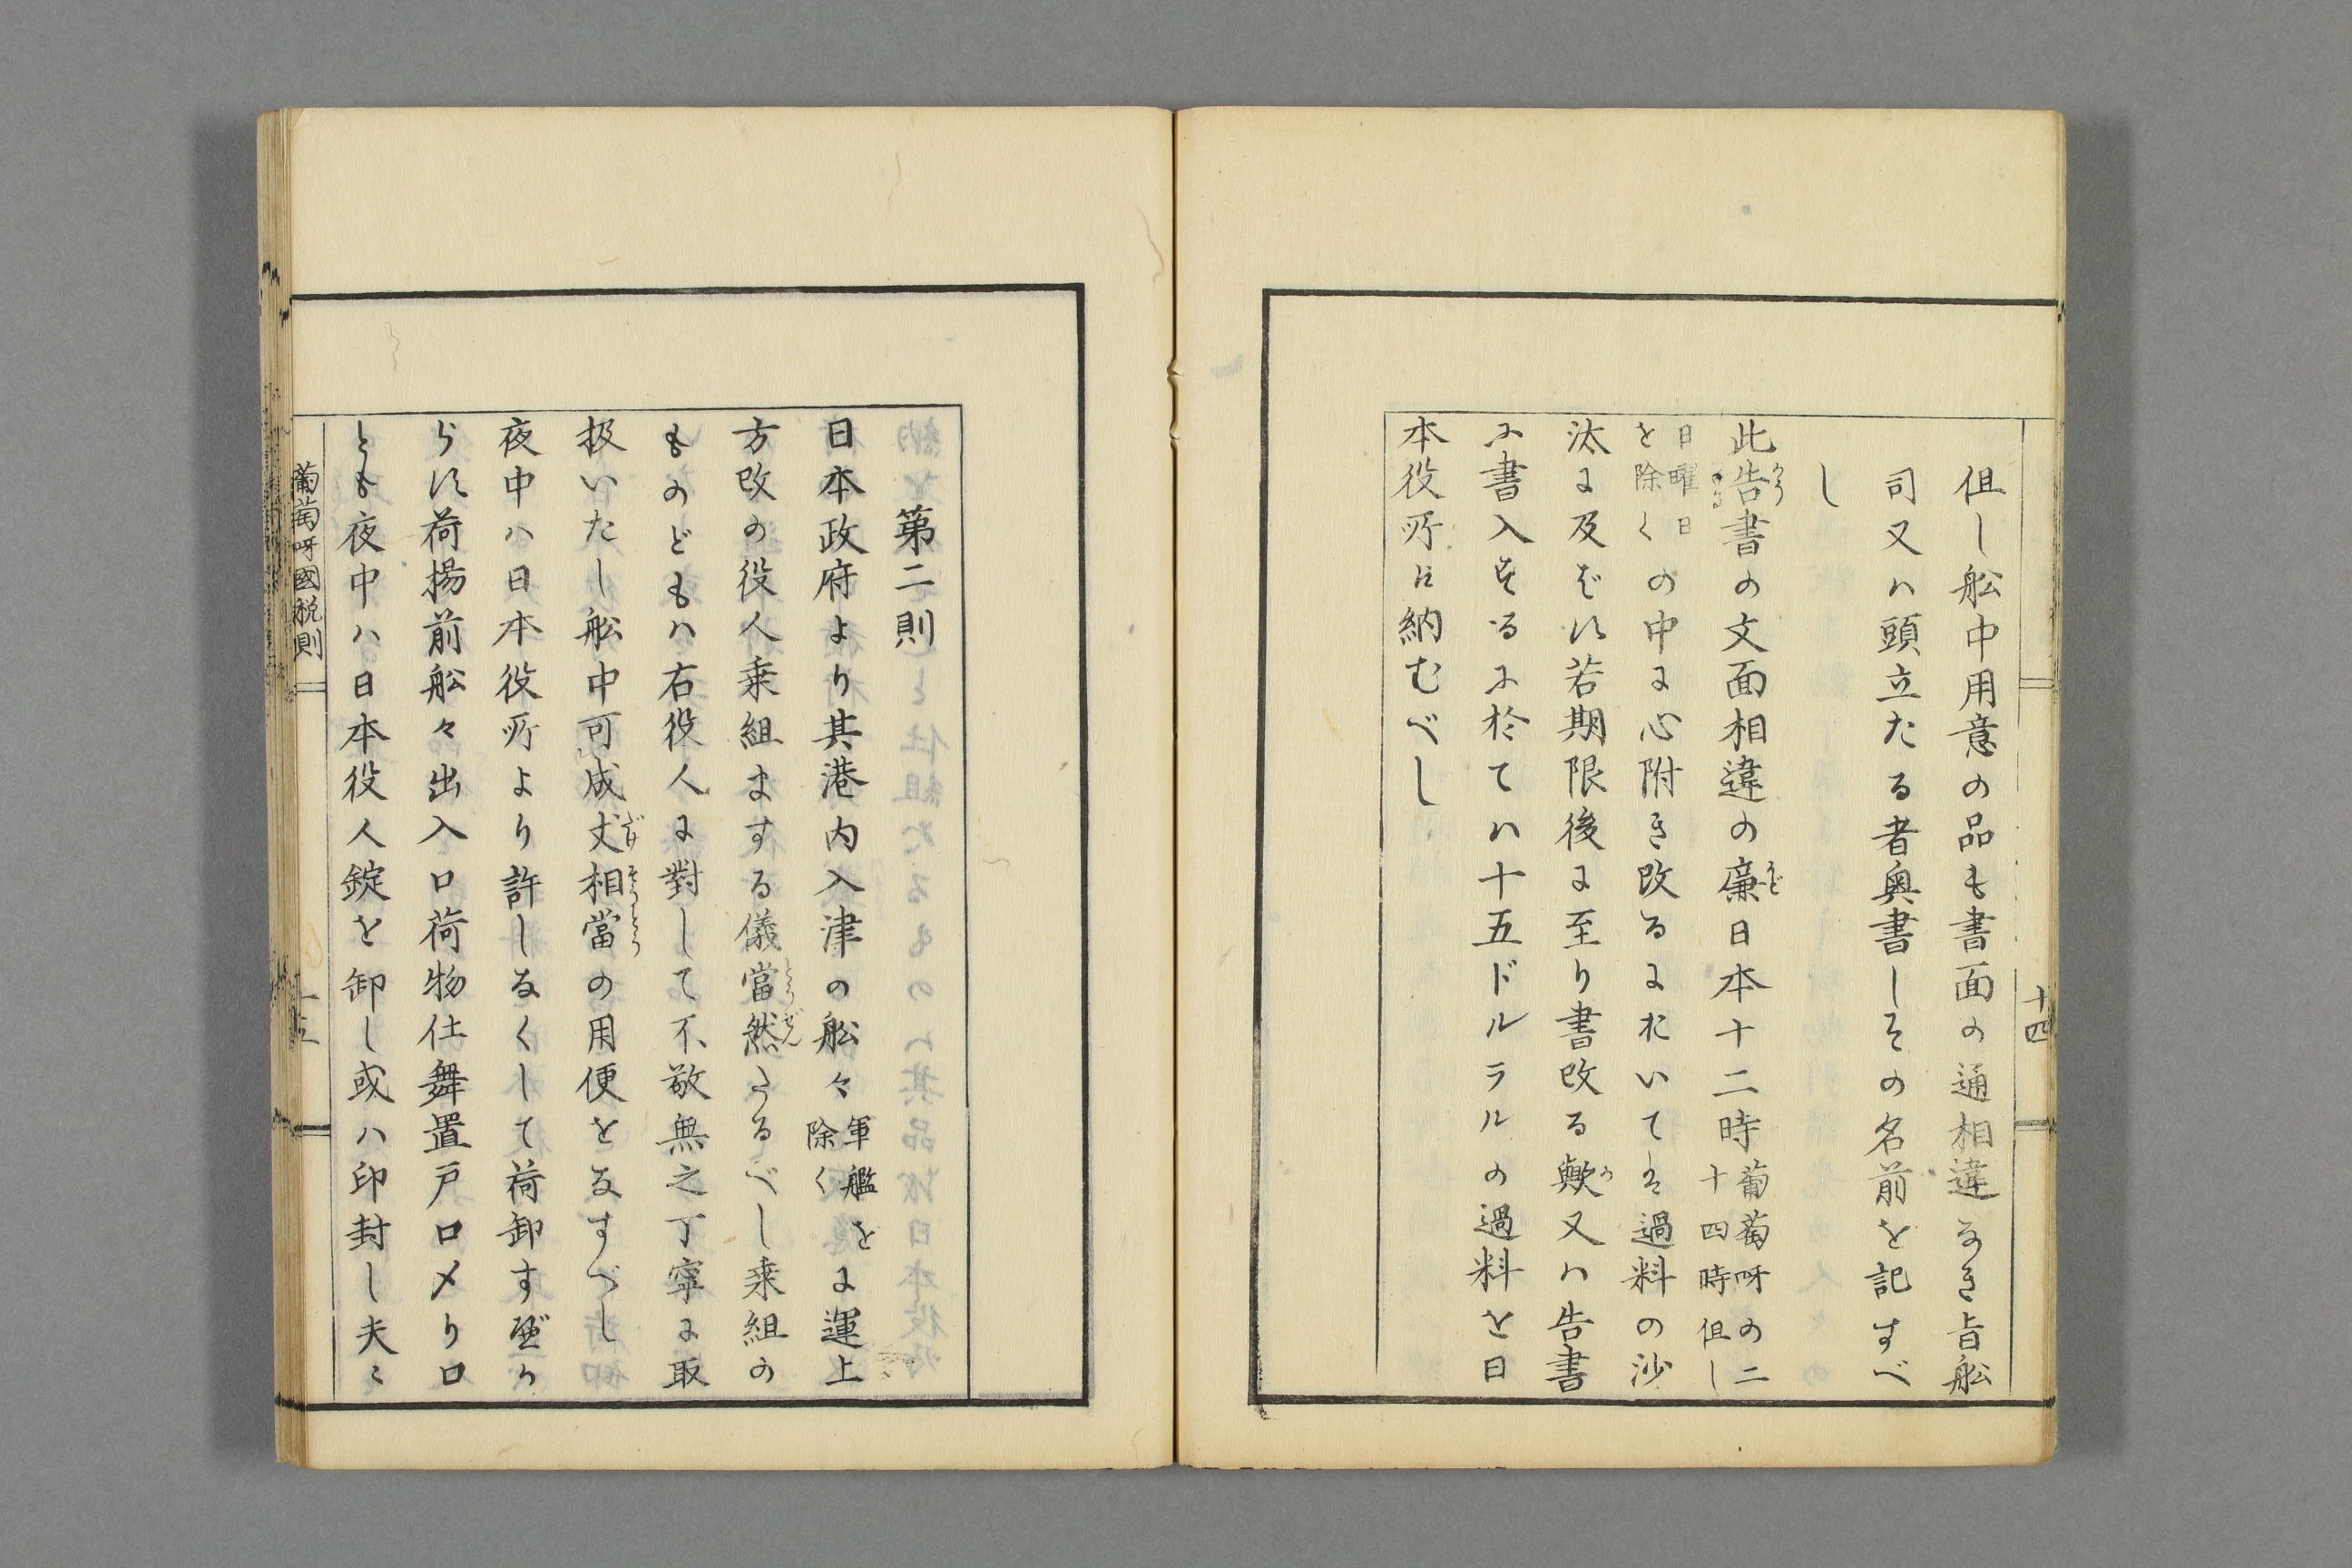 十四
但し舩中用意の品も書面の通相違なき旨舩
司又ハ頭立たる者奥書しその名前を記すべ
し
此告書の文面相違の廉日本十二時葡萄呀の二十四時但し
日曜日を除くの中に心附き改るにおいてハ過料の沙
汰に及ばず若期限後に至り書改る歟又ハ告書
に書入するに於てハ十五ドルラルの過料を日
本役所に納むべし
第二則
日本政府より其港内入津の舩々軍艦を除くに運上
方改の役人乗組まする儀當然たるべし乗組の
ものどもハ右役人に對して不敬無之丁寧に取
扱いたし舩中可成丈相當の用便をなすべし
夜中ハ日本役所より許しなくして荷卸すべか
らず荷揚前舩々出入口荷物仕舞置戸口〆り口
とも夜中ハ日本役人錠を卸し或ハ印封し夫々
葡萄呀國税則
十五